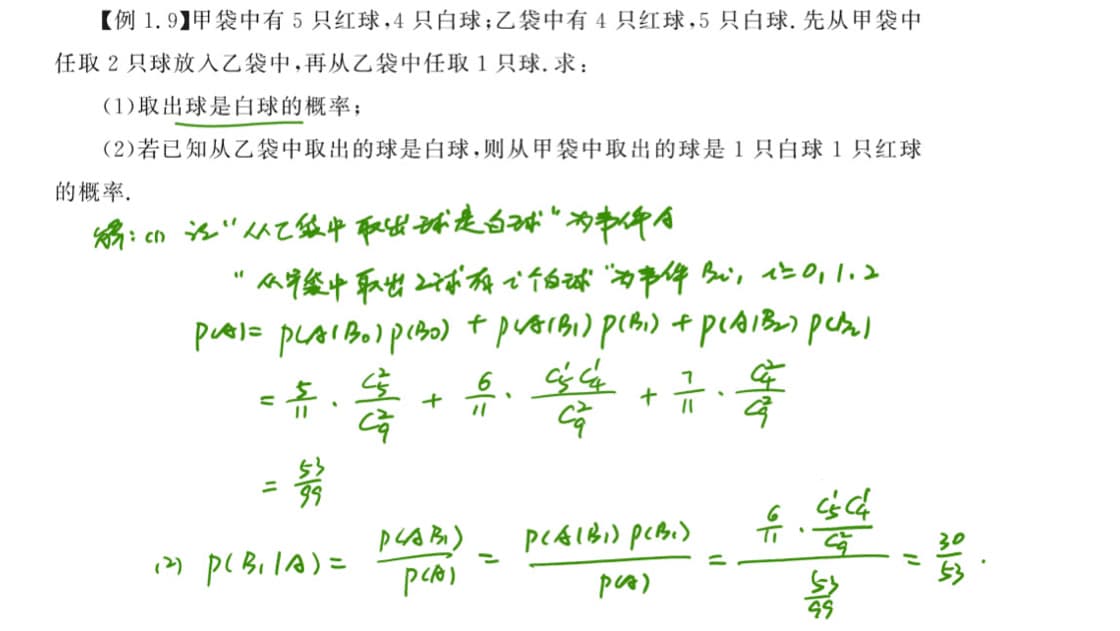 【例 1.9】甲袋中有 5 只红球,4 只白球;乙袋中有 4 只红球,5 只白球.先从甲袋中
任取 2 只球放入乙袋中,再从乙袋中任取 1 只球.求:
(1)取出球是白球的概率;
(2)若已知从乙袋中取出的球是白球,则从甲袋中取出的球是 1 只白球 1 只红球
的概率.
解:(1) 设"从乙袋中取出球是白球"为事件A
"从甲袋中取出2球有i个白球"为事件Bi, i=0,1.2
P(A)= P(A|B₀)P(B₀) + P(A|B₁)P(B₁) + P(A|B₂)P(B₂)
= 5/11 · C₅²/C₉² + 6/11 · C₅¹C₄¹/C₉² + 7/11 · C₄²/C₉²
= 53/99
(2) P(B₁|A) = P(AB₁)/P(A) = P(A|B₁)P(B₁)/P(A) = (6/11 · C₅¹C₄¹/C₉²)/(53/99) = 30/53.